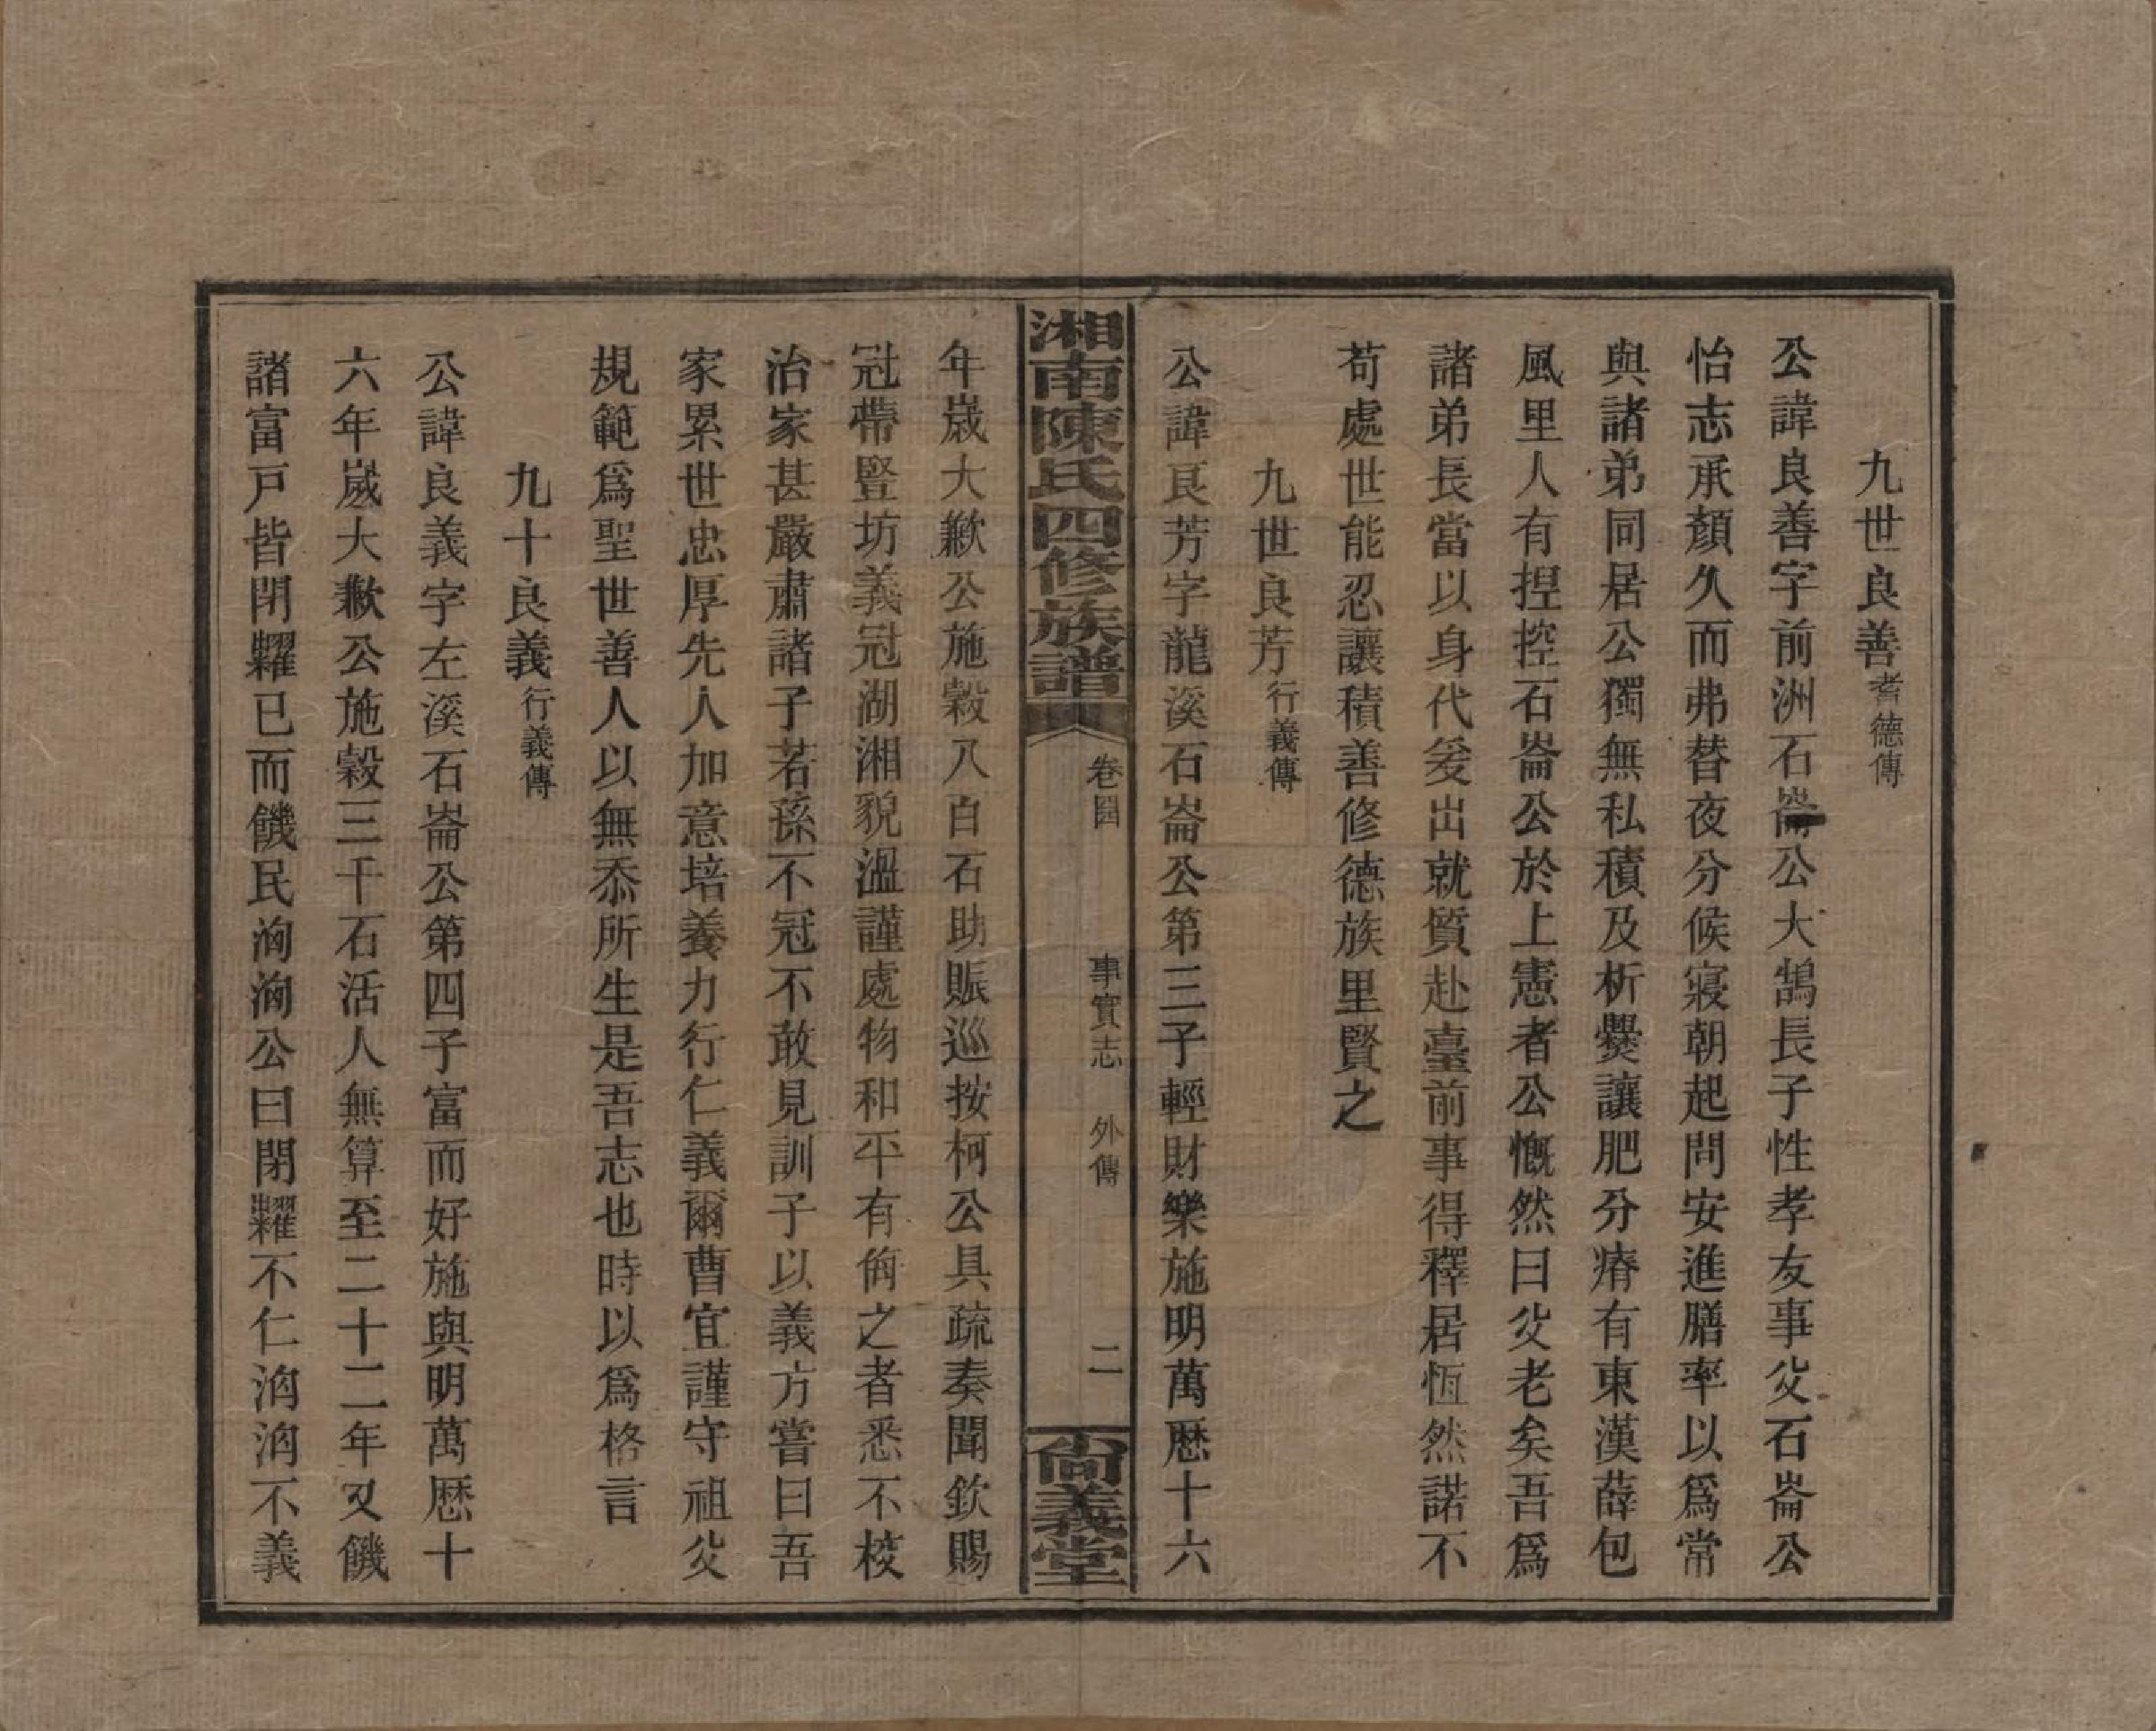 九世良善耆德傳
公諱良善字前洲石崙公大鵠長子性孝友事父石崙公
怡志承顏久而弗替夜分候寢朝起問安進膳率以爲常
與諸弟同居公獨無私積及析爨讓肥分瘠有東漢薛包
風里人有捏控石崙公於上憲者公慨然曰父老矣吾爲
諸弟長當以身代爰出就質赴臺前事得釋居恆然諾不
苟處世能忍讓積善修德族里賢之
九世良芳行義傳
公諱良芳字龍溪石崙公第三子輕財樂施明萬歷十六
湘南陳氏四修族譜 卷四 事實志 外傳 二 尚義堂
年嵗大歉公施穀八百石助賑巡按柯公具疏奏聞欽賜
冠帶豎坊義冠湖湘貌溫謹處物和平有侮之者悉不校
治家甚嚴肅諸子若孫不冠不敢見訓子以義方嘗曰吾
家累世忠厚先人加意培養力行仁義爾曹宜謹守祖父
規範爲聖世善人以無忝所生是吾志也時以爲格言
九十良義行義傳
公諱良義字左溪石崙公第四子富而好施與明萬歷十
六年嵗大歉公施穀三千石活人無算至二十二年又饑
諸富戸皆閉糶已而饑民洶洶公曰閉糶不仁洶洶不義